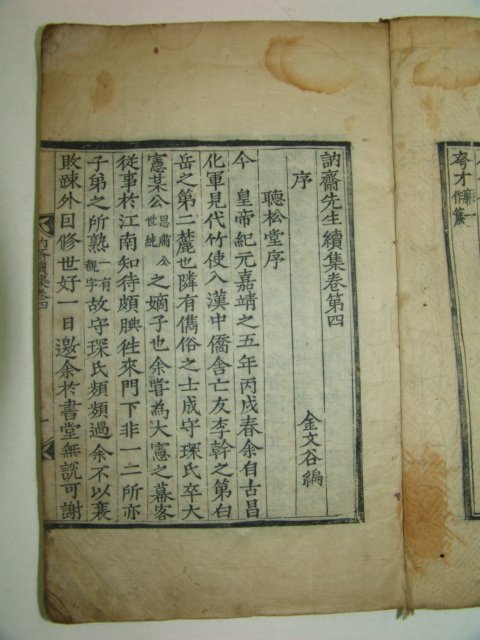 訥齋先生續集卷第四
序 金文谷編
聽松堂序
今 皇帝紀元嘉靖之五年丙戌春余自古昌
化軍見代竹使入漢中僑舍亡友李幹之第白
岳之第二麓也隣有儁俗之士成守琛氏卒大
憲某公恩肅公世純之嫡子也余嘗為大憲之幕客
從事於江南知待頗腆徃來門下非一二所亦
子弟之所熟一有覩字故守琛氏頻頻過余不以衰
敗踈外回修世好一日邀余於書堂無説可謝
訥齋續集卷四
考才廉一作簾